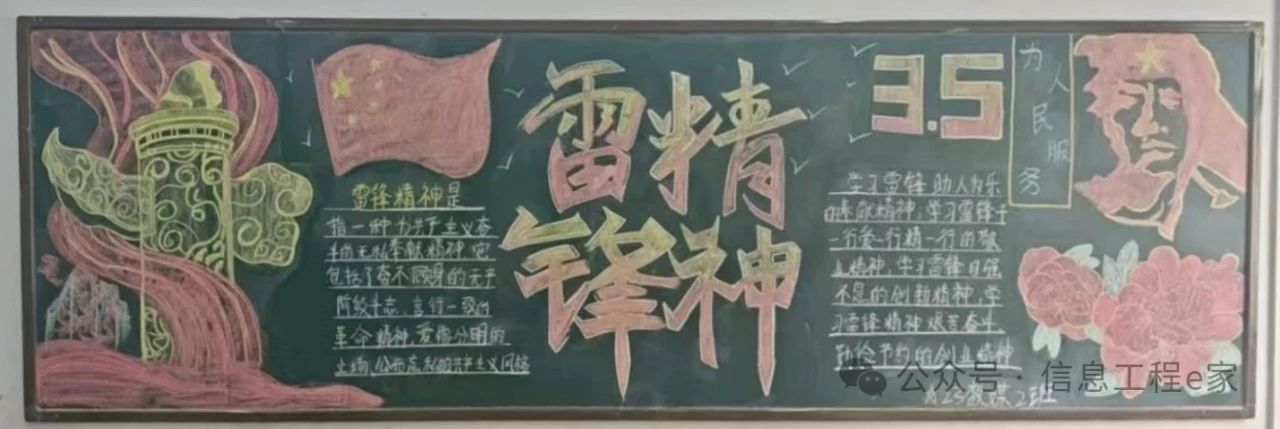 雷锋精神是
指一种为共产主义奋
斗的无私奉献精神,它
包括了奋不顾身的无产
阶级斗志,言行一致的
革命精神,爱憎分明的
立场,公而忘私的共产主义风格
雷精
锋神
3.5
为人民服务
学习雷锋助人为乐
的奉献精神;学习雷锋干
一行爱一行精一行的敬
业精神;学习雷锋自强
不息的创新精神,学
习雷锋精神艰苦奋斗
勤俭节约的创业精神
2班
公众号·信息工程e家